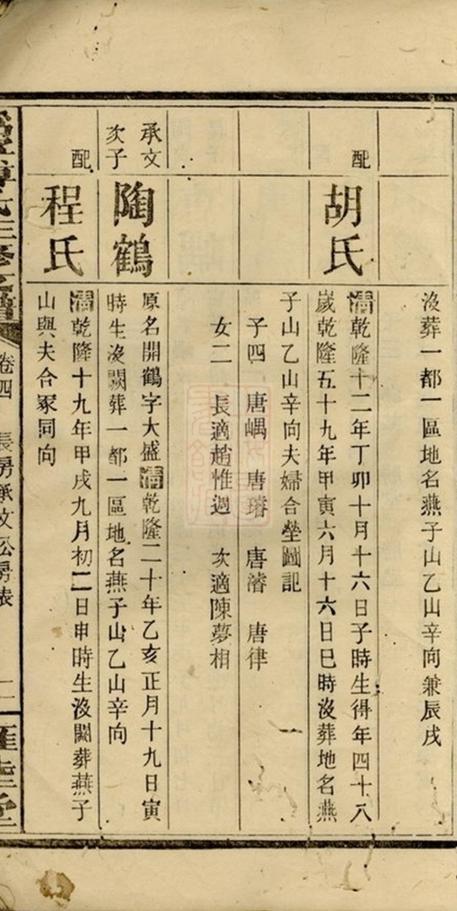 沒葬一都一區地名燕子山乙山辛向兼辰戌
配
胡氏
清乾隆十二年丁卯十月十六日子時生得年四十八
歲乾隆五十九年甲寅六月十六日巳時沒葬地名燕
子山乙山辛向夫婦合塋圖記
子四 唐嵎 唐璿 唐濬 唐律
女二 長適趙惟週 次適陳夢相
承文
次子
陶鶴
原名開鶴字大盛清乾隆二十年乙亥正月十九日寅
時生沒闕葬一都一區地名燕子山乙山辛向
配
程氏
清乾隆十九年甲戌九月初二日申時生沒闕葬燕子
山與夫合冢同向
氏三修
卷四 長房承文公房表
二
堂